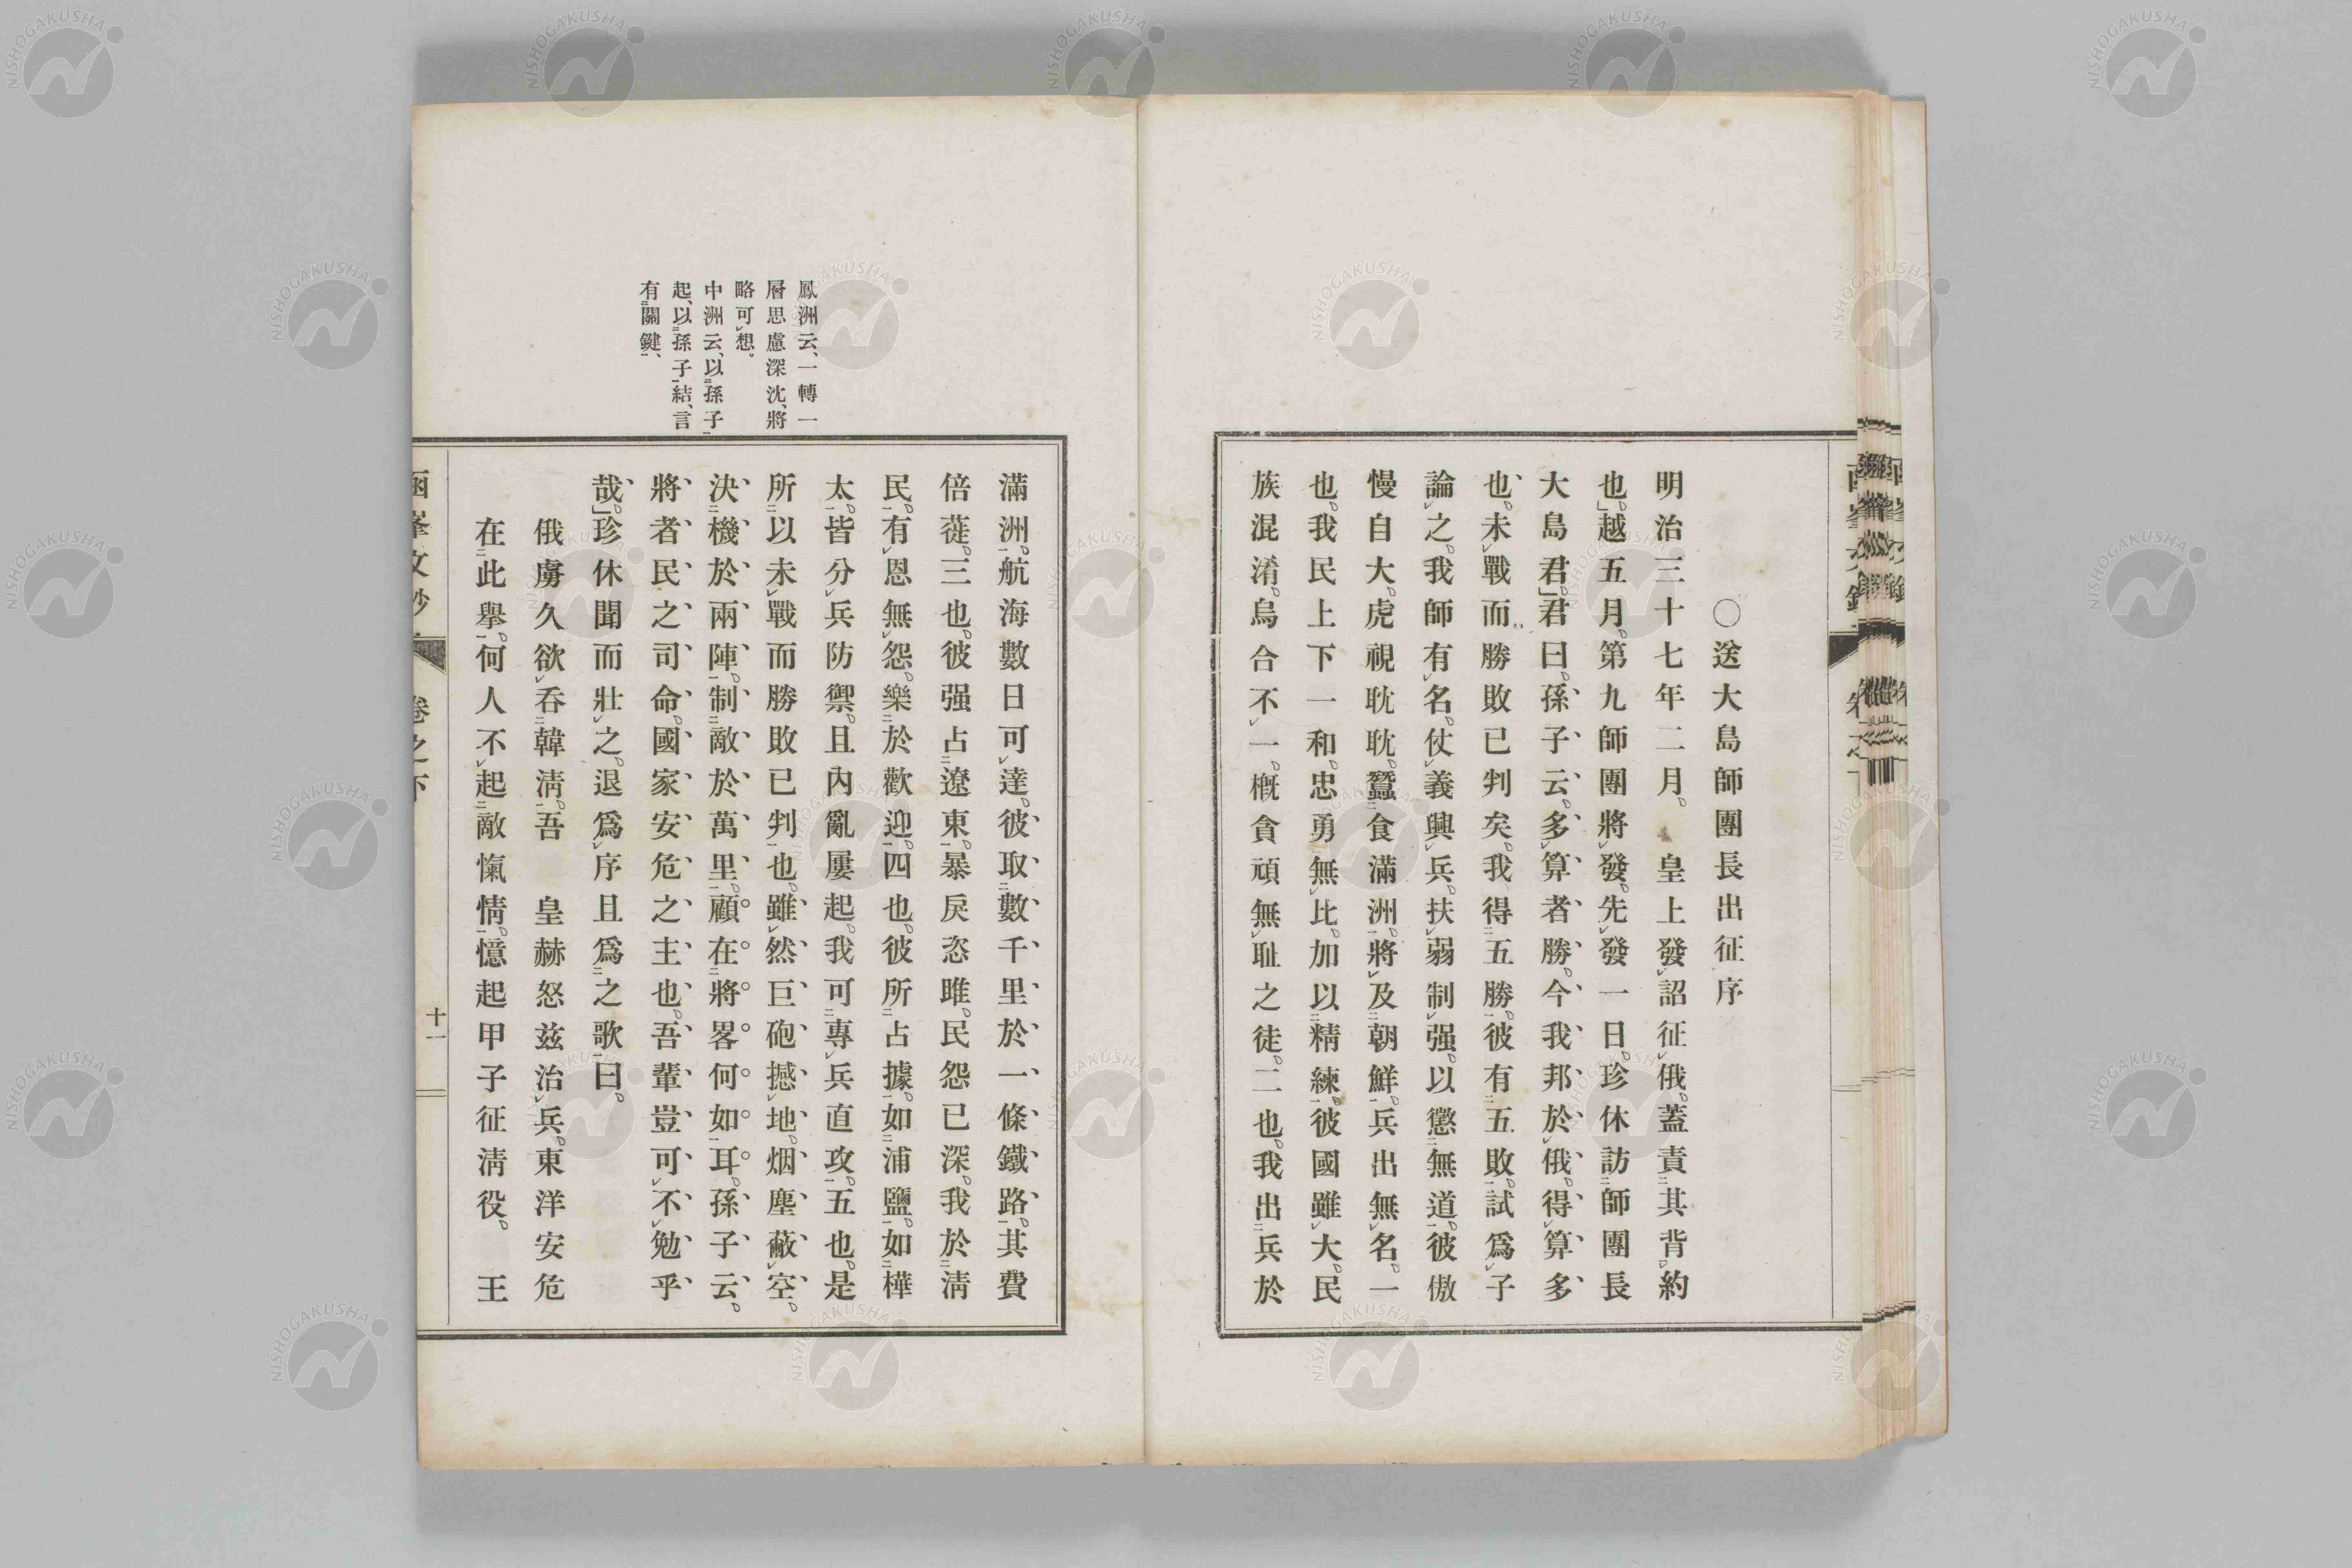 ○送大島師團長出征序
明治三十七年二月。皇上發詔征俄。蓋責其背約
也。越五月。第九師團將發。先發一日。珍休訪師團長
大島君。君曰。孫子云。多算者勝。今我邦於俄。得算多
也。未戰而勝敗已判矣。我得五勝。彼有五敗。試爲子
論之。我師有名。仗義興兵。扶弱制强。以懲無道。彼傲
慢自大。虎視耽耽。蠶食滿洲。將及朝鮮。兵出無名。一
也。我民上下一和。忠勇無比。加以精練。彼國雖大。民
族混淆。烏合不一。概貪頑無耻之徒。二也。我出兵於
滿洲。航海數日可達。彼取數千里於一條鐵路。其費
倍蓰。三也。彼强占遼東。暴戾恣雎。民怨已深。我於淸
民。有恩無怨。樂於歡迎。四也。彼所占據。如浦鹽。如樺
太。皆分兵防禦。且內亂屢起。我可專兵直攻。五也。是
所以未戰而勝敗已判也。雖然巨砲撼地。烟塵蔽空。
決機於兩陣。制敵於萬里。顧在將畧何如耳。孫子云。
將者民之司命。國家安危之主也。吾輩豈可不勉乎
哉。珍休聞而壯之。退爲序且爲之歌曰。
俄虜久欲呑韓淸。吾 皇赫怒茲治兵。東洋安危
在此擧。何人不起敵愾情。憶起甲子征淸役。 王
鳳洲云、一轉一
層思慮深沈、將
略可想。
中洲云、以孫子
起、以孫子結、言
有關鍵、
函峯文鈔
卷之下
十一
NISHOGAKUSHA